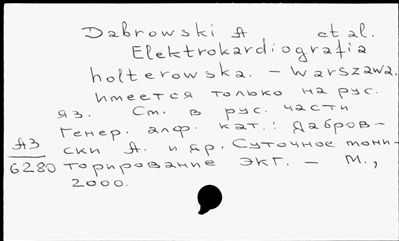 Dabrowski A et al.
Elektrokardiografia
holterowska. - Warszawa.
имеется только на рус.
яз. См. в рус. части
Генер. алф. кат.: Дабров-
ски А. и др. Суточное мони-
А3
6280 торирование ЭКГ. - М.,
2000.